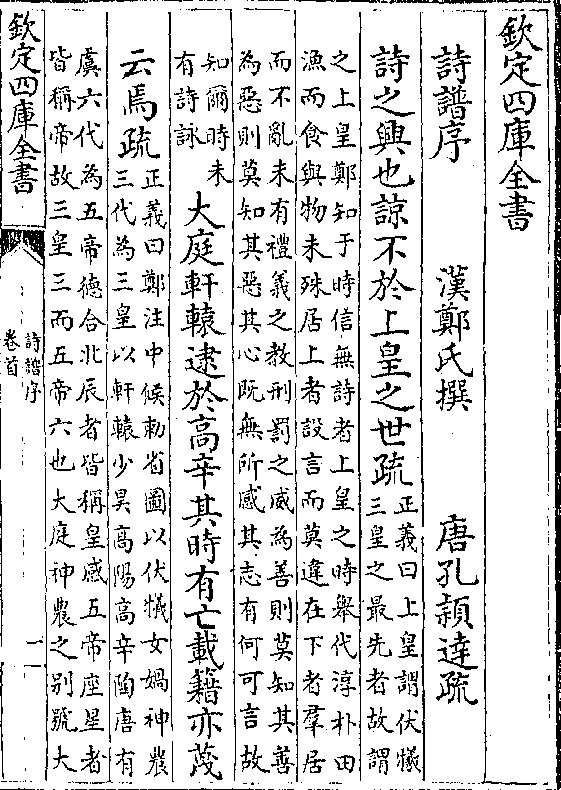 欽定四庫全書
詩譜序 漢鄭氏撰 唐孔頴逹疏
詩之興也諒不於上皇之世疏
正義曰上皇謂伏犧
三皇之最先者故謂
之上皇鄭知于時信無詩者上皇之時舉代淳朴田
漁而食與物未殊居上者設言而莫違在下者羣居
而不亂未有禮義之教刑罰之威為善則莫知其善
為惡則莫知其惡其心既無所感其志有何可言故
知爾時未
有詩詠
大庭軒轅逮於高辛其時有亡載籍亦蔑
云焉疏
正義曰鄭注中候勑省圖以伏犧女媧神農
三代為三皇以軒轅少昊高陽高辛陶唐有
虞六代為五帝德合北辰者皆稱皇感五帝座星者
皆稱帝故三皇三而五帝六也大庭神農之别號大
欽定四庫全書
詩譜序
卷首
一